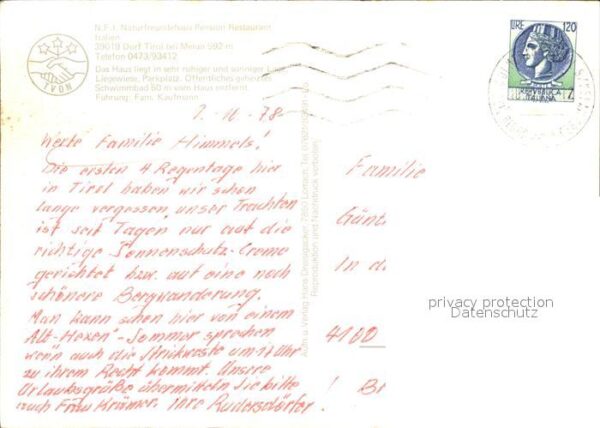 N.F.I. Naturfreundehaus Pension Restaurant
Italien
39019 Dorf Tirol bei Meran 592 m
Telefon 0473/93412
Das Haus liegt in sehr ruhiger und sonniger Lage
Liegewiese, Parkplatz. Öffentliches geheiztes
Schwimmbad 60 m vom Haus entfernt
Führung: Fam. Kaufmann
TVDN
LIRE 120
REPVBBLICA
ITALIANA
78
Werte Familie Himmels!
Die ersten 4 Regentage hier
in Tirol haben wir schon
lange vergessen, unser Trachten
ist seit Tagen nur auf die
richtige Sonnenschutz-Creme
gerichtet bzw. auf eine noch
schönere Bergwanderung.
Man kann schon hier von einem
Alt-Hexen"-Sommer sprechen
wenn auch die Strickweste um 17 Uhr
zu ihrem Recht kommt. Unsere
Urlaubsgrüße übermitteln Sie bitte
auch Frau Krämer. Ihre Rudersdörfer!
Reproduktion und Nachdruck verboten
Familie
Günt
In d.
4100
privacy protection
Datenschutz